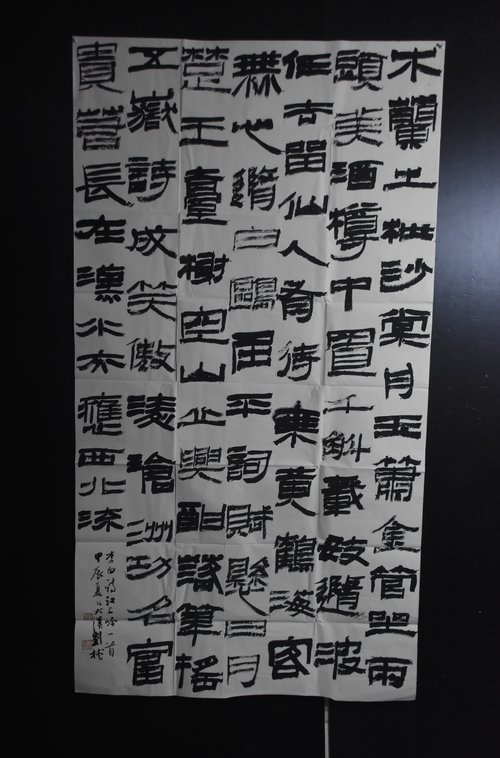 木蘭之枻沙棠舟玉簫金管坐兩
頭美酒樽中置千斛載妓隨波
任去留仙人有待乘黃鶴海客
無心隨白鷗屈平詞賦懸日月
楚王臺榭空山丘興酣落筆搖
五嶽詩成笑傲凌滄洲功名富
貴若長在漢水亦應西北流
李白詩江上吟一首
甲辰夏